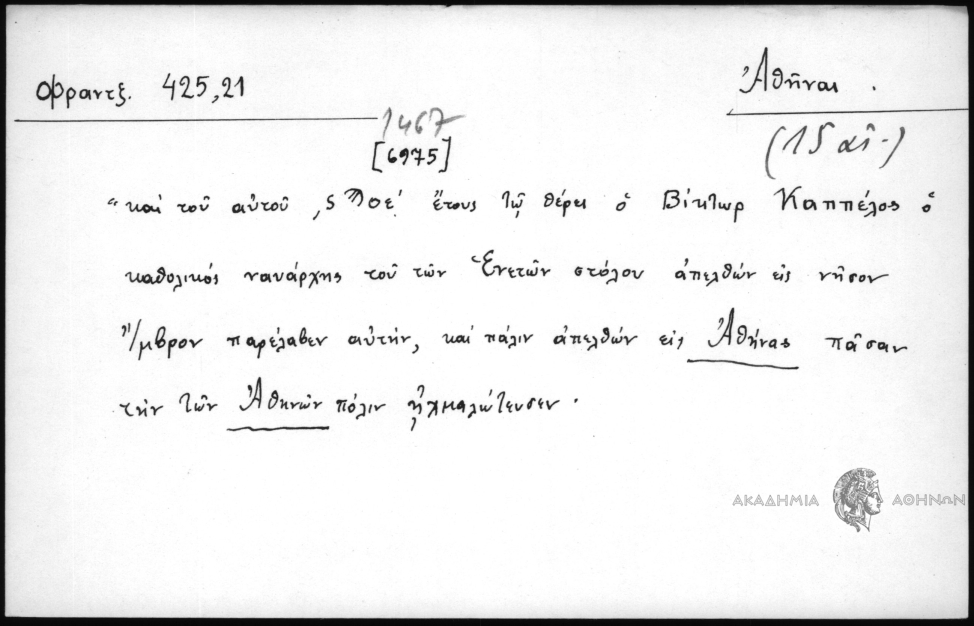 Φραντζ. 425,21
Ἀθῆναι.
1467
(15 αἰ.)
[6975]
"καὶ τοῦ αὐτοῦ ,ϛϡοε΄ ἔτους τῷ θέρει ὁ Βίκτωρ Καππέλος ὁ
καθολικός ναυάρχης τοῦ τῶν Ἐνετῶν στόλου ἀπελθών εἰς νῆσον
Ἴμβρον παρέλαβεν αὐτήν, καί πάλιν ἀπελθών εἰς Ἀθήνας πᾶσαν
τήν τῶν Ἀθηνῶν πόλιν ᾐχμαλώτευσεν.
ΑΚΑΔΗΜΙΑ ΑΘΗΝΩΝ